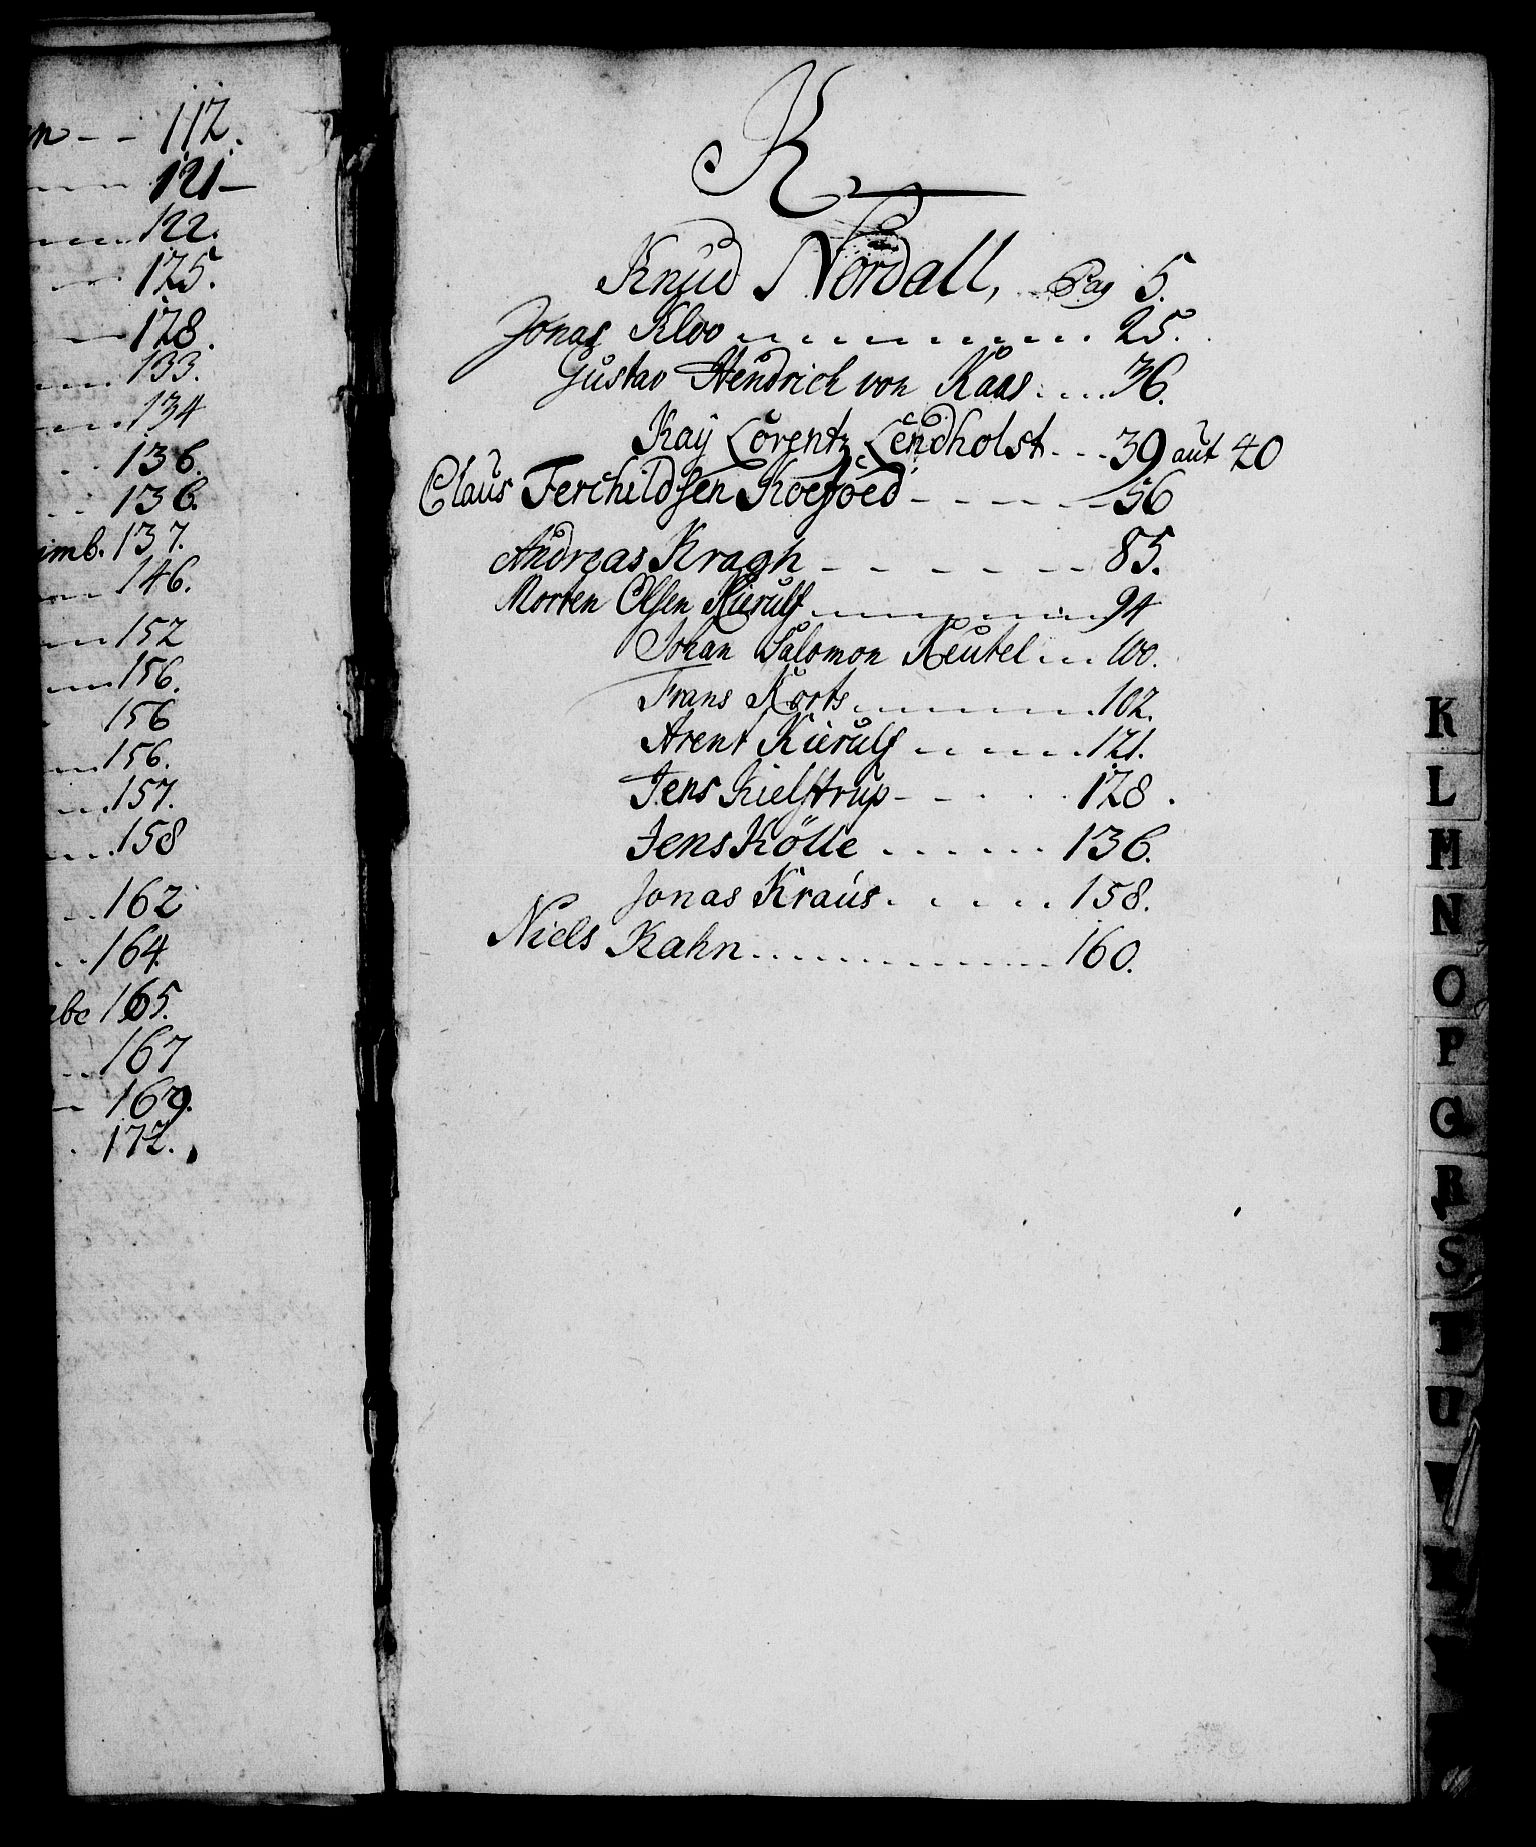 n - - 112.
121 -
122.
125.
128.
133.
134
136.
136.
imb. 137.
146.
152
156.
156
156.
157.
158
162
164
165.
167
169.
172.
K
Knud Nordall, Pag 5.
Jonas Kloo 25.
Gustav Hendrich von Kaas . . . . 36.
Kaÿ Lorentz Lendholst . . . 39 aut 40
Claus Terchildsen Koefoed - - - - - 56
Andreas Kragh - - - - - - - 85.
Morten Olsen Kierulf 94
Johan Salomon Keutel 100.
Frans Korts 102.
Arent Kierulf 121.
Jens Kielstrup - - 128.
Jens Kölle . . . . . . . 136.
Jonas Kraus . . . . . 158.
Niels Kahn 160.
K
L
M
N
O
P
Q
R
S
T
U